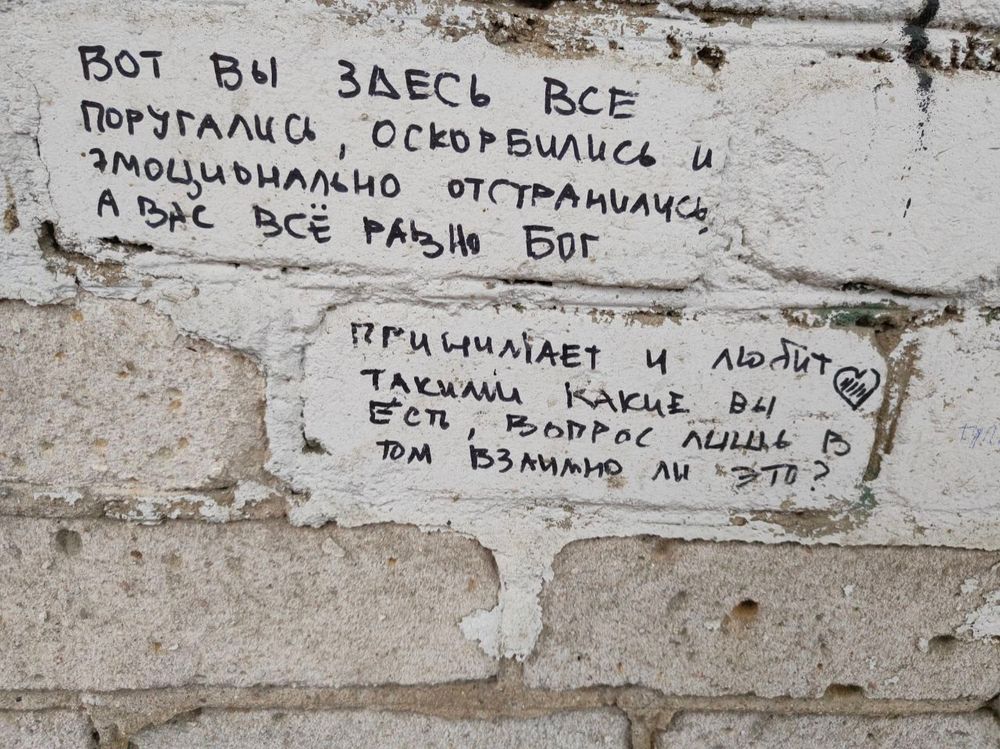 ВОТ ВЫ ЗДЕСЬ ВСЕ
ПОРУГАЛИСЬ, ОСКОРБИЛИСЬ И
ЭМОЦИОНАЛЬНО ОТСТРАНИЛИСЬ,
А ВАС ВСЁ РАВНО БОГ
ПРИНИМАЕТ И ЛЮБИТ
ТАКИМИ КАКИЕ ВЫ
ЕСТЬ, ВОПРОС ЛИШЬ В
ТОМ ВЗАИМНО ЛИ ЭТО?